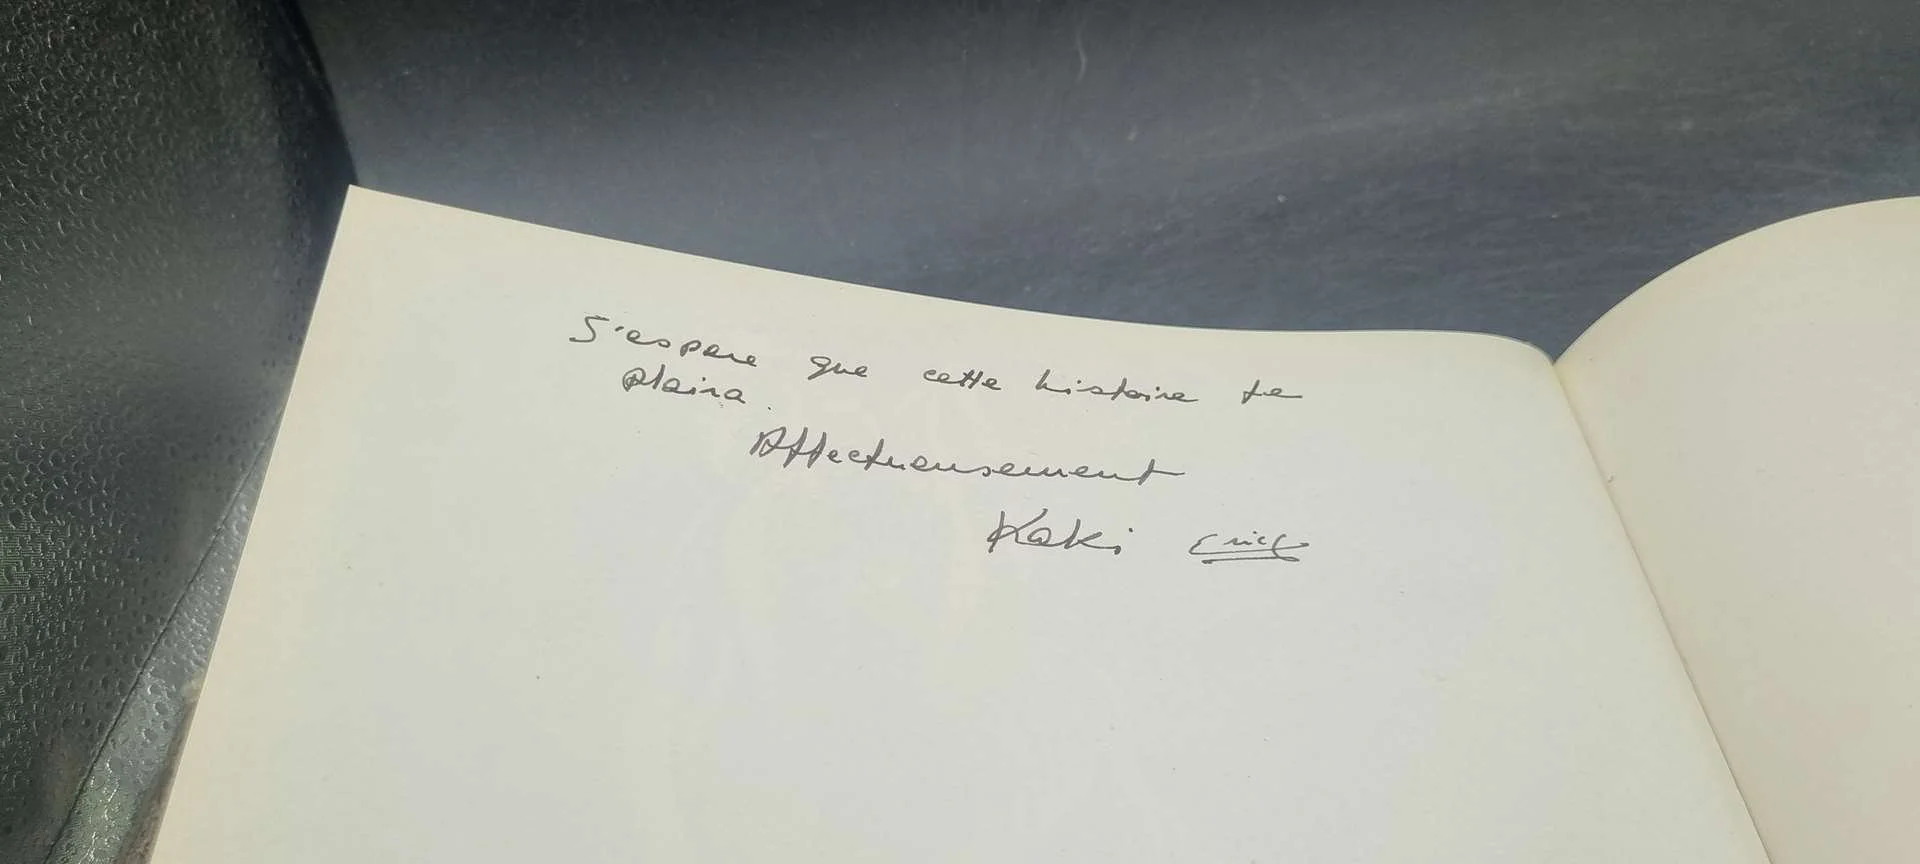 J'espere que cette histoire te
plaira.
Affectueusement
Kaki